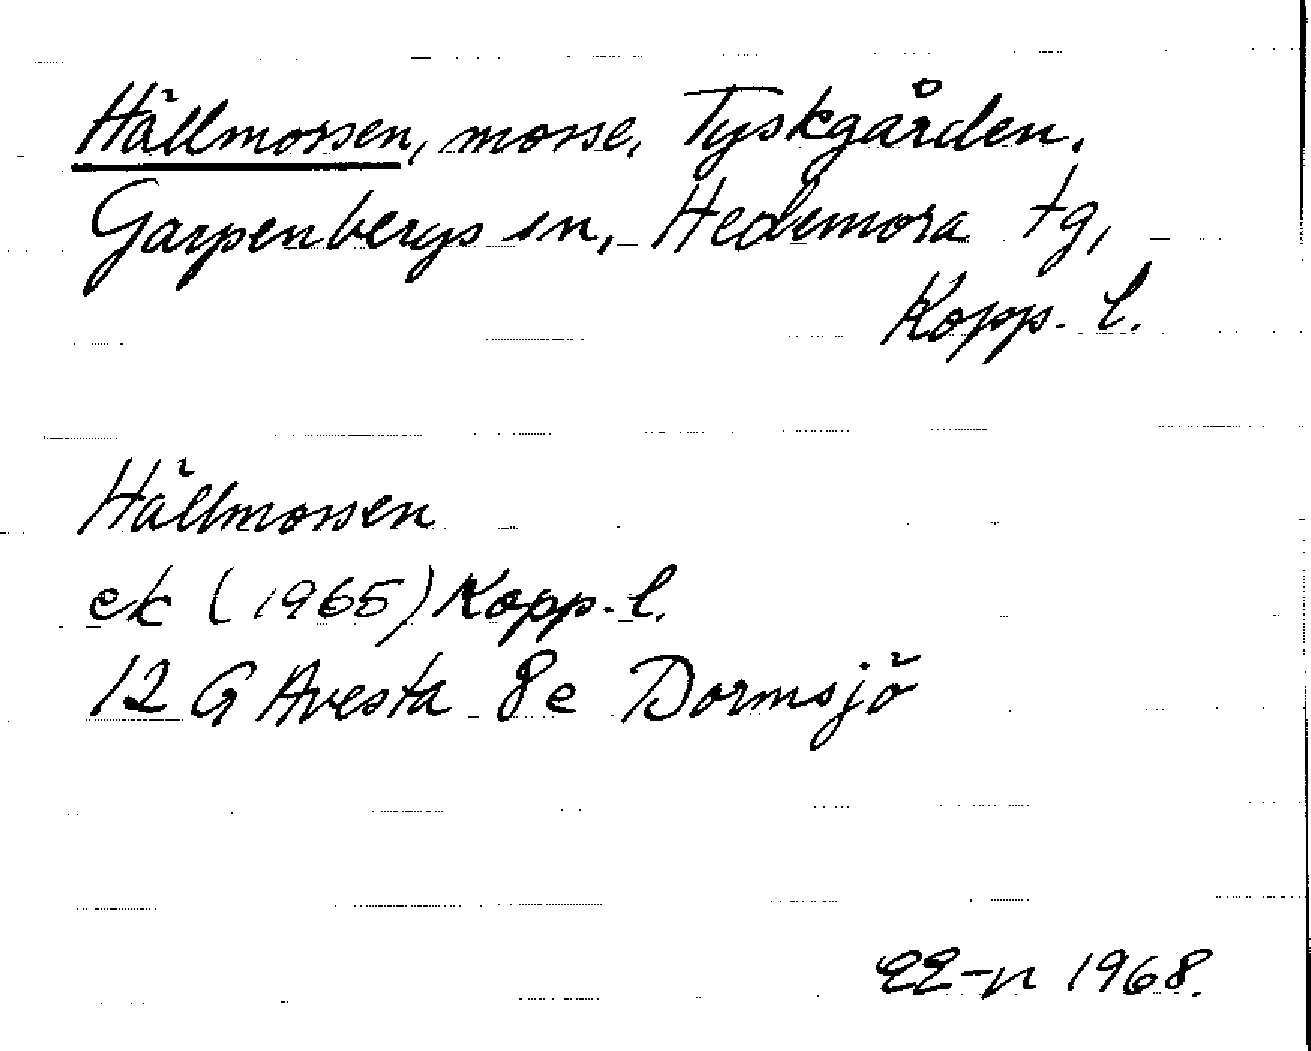 Hällmossen, mosse, Tyskgården.
Garpenbergs sn, Hedemora tg,
Kopp. l.
Hällmossen
ek (1965) Kopp. l.
12 G Avesta 8e Dormsjö
EE-n 1968.